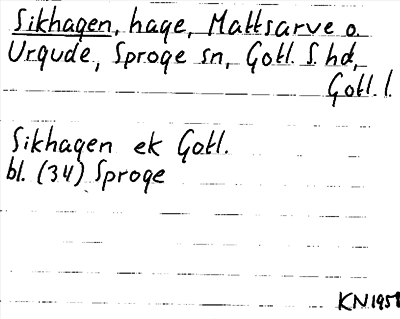 Sikhagen, hage, Mattsarve o.
Urgude, Sproge sn, Gotl. S. hd,
Gotl. l.
Sikhagen ek Gotl.
bl. (34) Sproge
KN 1958